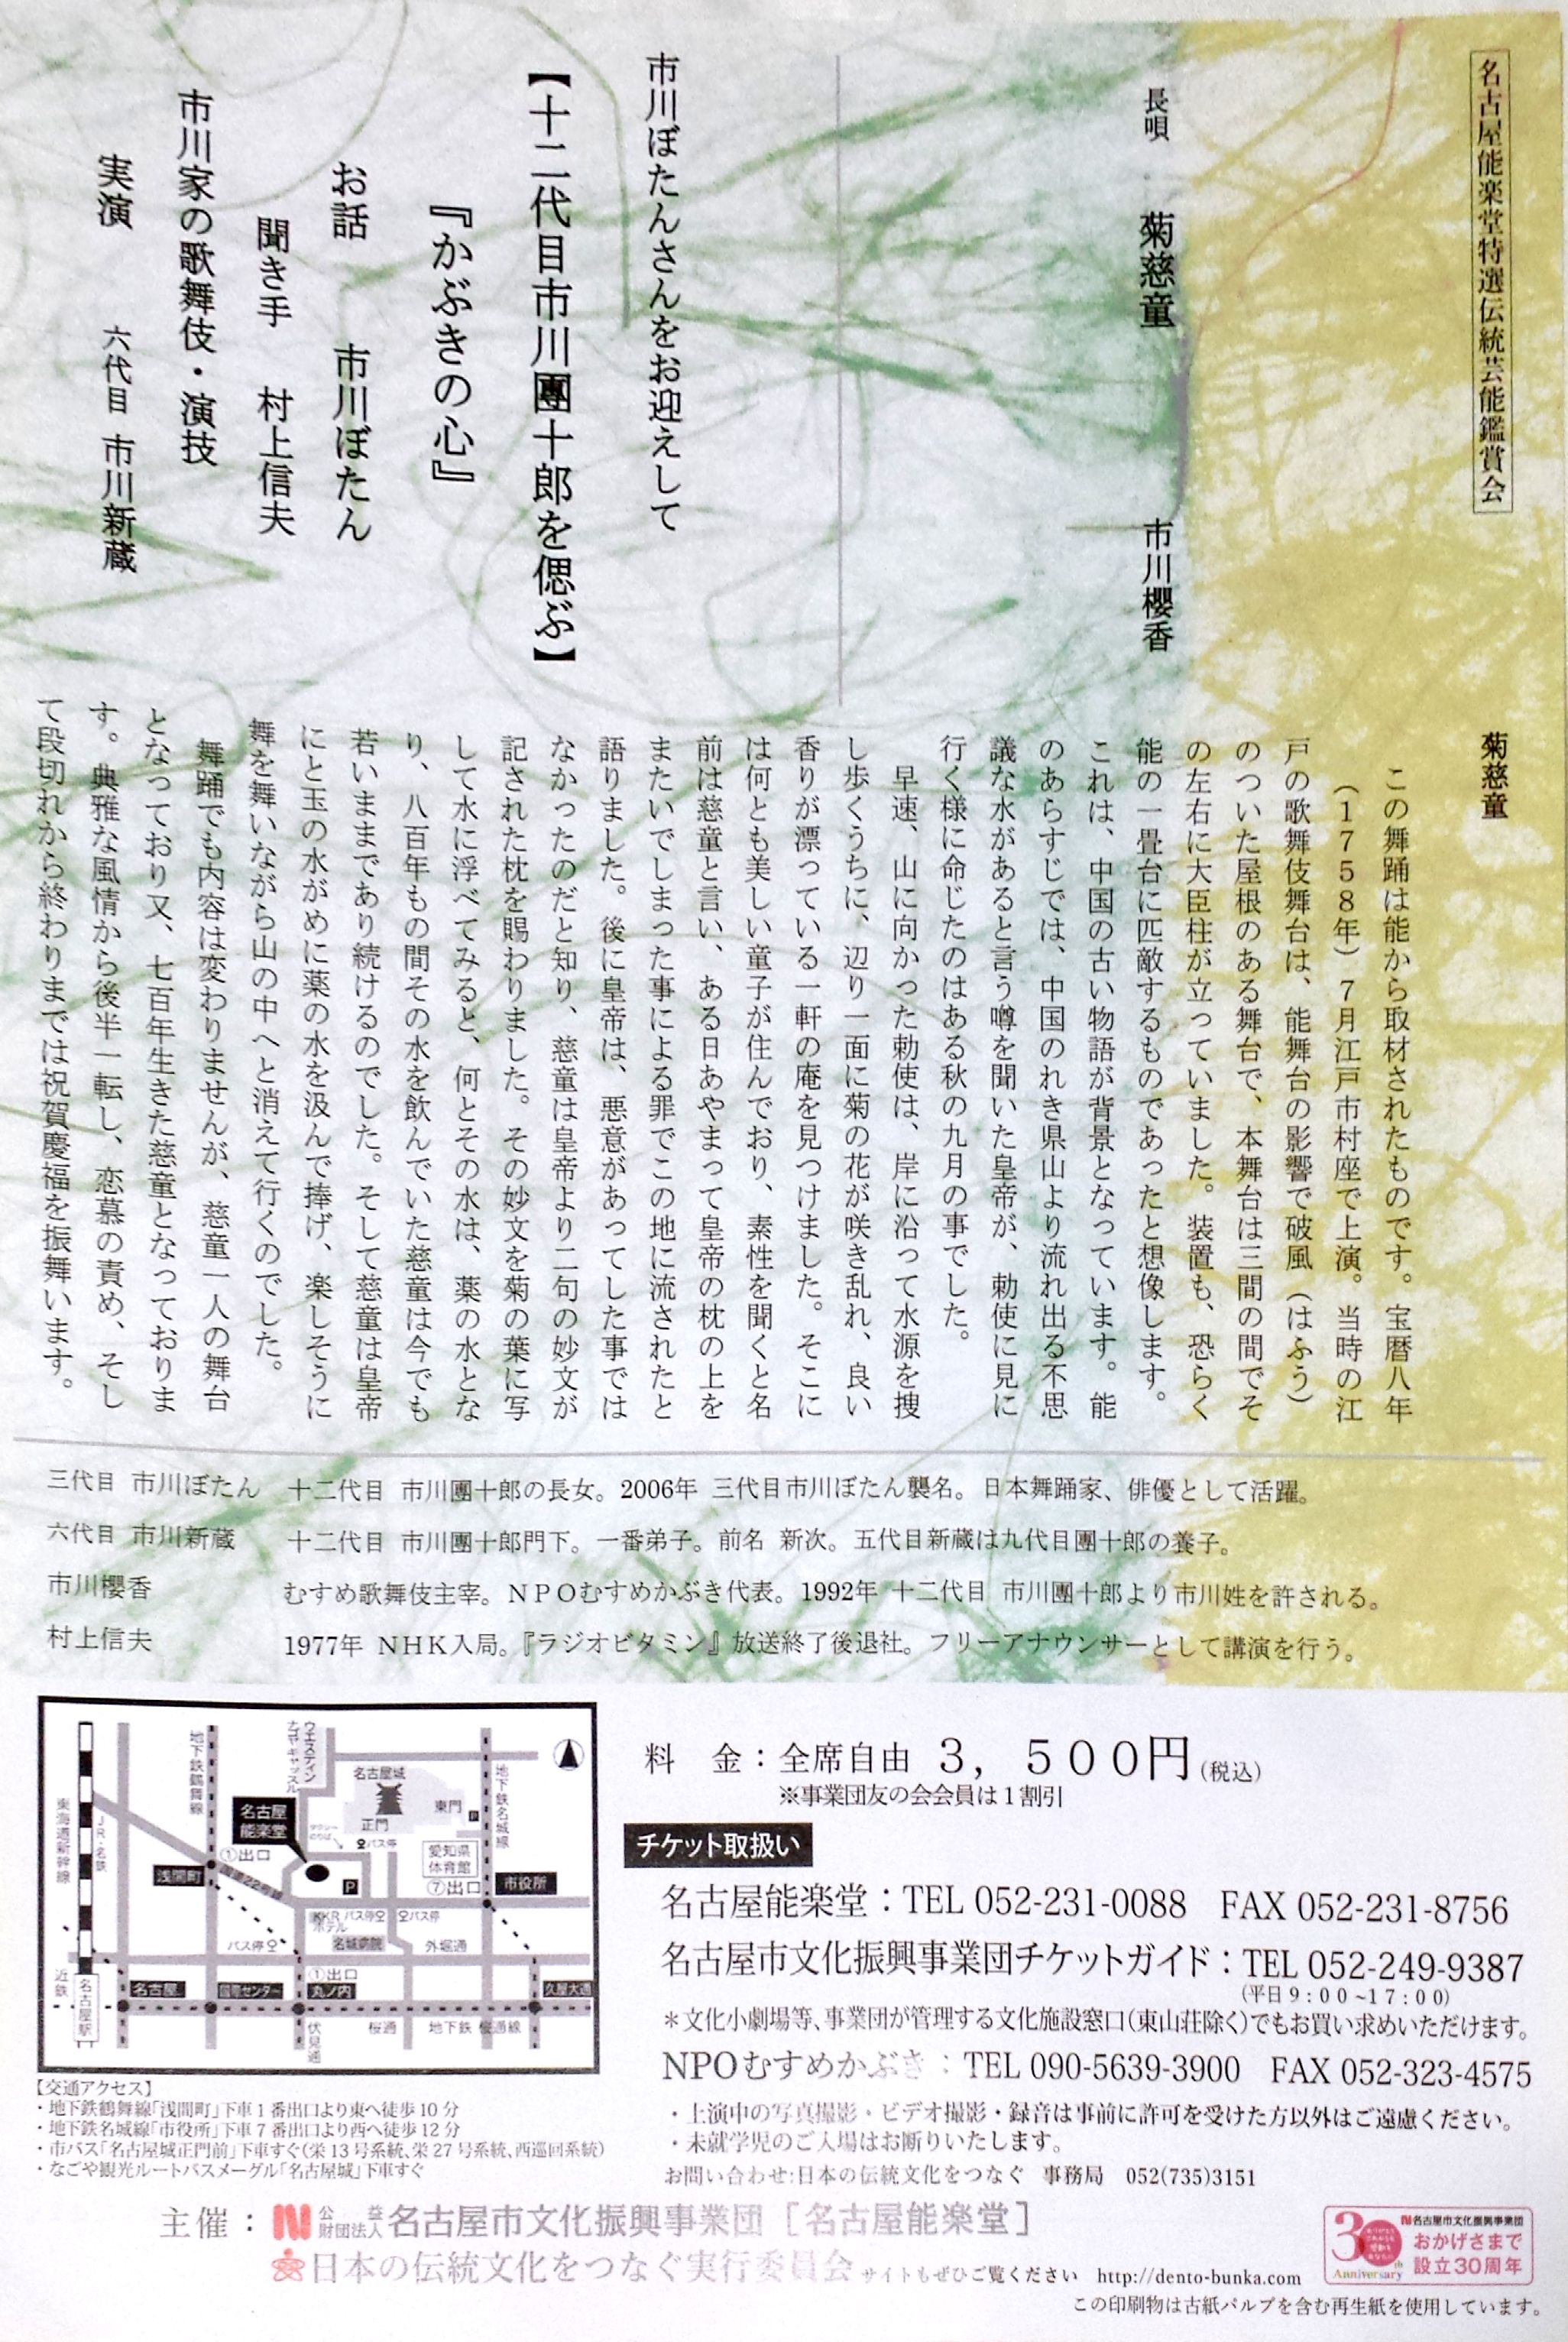 名古屋能楽堂特選伝統芸能鑑賞会
長唄 菊慈童 市川櫻香
市川ぼたんさんをお迎えして
【十二代目市川團十郎を偲ぶ】
『かぶきの心』
お話 市川ぼたん
聞き手 村上信夫
市川家の歌舞伎・演技
実演 六代目 市川新蔵
菊慈童
この舞踊は能から取材されたものです。宝暦八年
(1758年)7月江戸市村座で上演。当時の江
戸の歌舞伎舞台は、能舞台の影響で破風(はふう)
のついた屋根のある舞台で、本舞台は三間の間でそ
の左右に大臣柱が立っていました。装置も、恐らく
能の一畳台に匹敵するものであったと想像します。
これは、中国の古い物語が背景となっています。能
のあらすじでは、中国のれき県山より流れ出る不思
議な水があると言う噂を聞いた皇帝が、勅使に見に
行く様に命じたのはある秋の九月の事でした。
早速、山に向かった勅使は、岸に沿って水源を捜
し歩くうちに、辺り一面に菊の花が咲き乱れ、良い
香りが漂っている一軒の庵を見つけました。そこに
は何とも美しい童子が住んでおり、素性を聞くと名
前は慈童と言い、ある日あやまって皇帝の枕の上を
またいでしまった事による罪でこの地に流されたと
語りました。後に皇帝は、悪意があってした事では
なかったのだと知り、慈童は皇帝より二句の妙文が
記された枕を賜わりました。その妙文を菊の葉に写
して水に浮べてみると、何とその水は、薬の水とな
り、八百年もの間その水を飲んでいた慈童は今でも
若いままであり続けるのでした。そして慈童は皇帝
にと玉の水がめに薬の水を汲んで捧げ、楽しそうに
舞を舞いながら山の中へと消えて行くのでした。
舞踊でも内容は変わりませんが、慈童一人の舞台
となっており又、七百年生きた慈童となっておりま
す。典雅な風情から後半一転し、恋慕の責め、そし
て段切れから終わりまでは祝賀慶福を振舞います。
三代目 市川ぼたん 十二代目 市川團十郎の長女。2006年 三代目市川ぼたん襲名。日本舞踊家、俳優として活躍。
六代目 市川新蔵 十二代目 市川團十郎門下。一番弟子。前名 新次。五代目新蔵は九代目團十郎の養子。
市川櫻香 むすめ歌舞伎主宰。NPOむすめかぶき代表。1992年 十二代目 市川團十郎より市川姓を許される。
村上信夫 1977年 NHK入局。『ラジオビタミン』放送終了後退社。フリーアナウンサーとして講演を行う。
東海道新幹線
JR・名鉄
地下鉄鶴舞線
ウエスティン
ナゴヤキャッスル
名古屋城
東門
正門
P
地下鉄名城線
名古屋
能楽堂
タクシー
のりば
バス停
愛知県
体育館
①出口
浅間町
国道22号線
P
⑦出口
市役所
KKR
ホテル
バス停
バス停
名城病院
バス停
外堀通
①出口
近鉄
名古屋駅
名古屋
国際センター
丸ノ内
久屋大通
伏見通
桜通
地下鉄 桜通線
【交通アクセス】
・地下鉄鶴舞線「浅間町」下車1番出口より東へ徒歩10分
・地下鉄名城線「市役所」下車7番出口より西へ徒歩12分
・市バス「名古屋城正門前」下車すぐ(栄13号系統、栄27号系統、西巡回系統)
・なごや観光ルートバスメーグル「名古屋城」下車すぐ
料 金:全席自由 3,500円(税込)
※事業団友の会会員は1割引
チケット取扱い
名古屋能楽堂:TEL 052-231-0088 FAX 052-231-8756
名古屋市文化振興事業団チケットガイド:TEL 052-249-9387
(平日9:00~17:00)
*文化小劇場等、事業団が管理する文化施設窓口(東山荘除く)でもお買い求めいただけます。
NPOむすめかぶき:TEL 090-5639-3900 FAX 052-323-4575
・上演中の写真撮影・ビデオ撮影・録音は事前に許可を受けた方以外はご遠慮ください。
・未就学児のご入場はお断りいたします。
お問い合わせ:日本の伝統文化をつなぐ 事務局 052(735)3151
主催:公益財団法人名古屋市文化振興事業団[名古屋能楽堂]
日本の伝統文化をつなぐ実行委員会 サイトもぜひご覧ください http://dento-bunka.com
30
th
Anniversary
名古屋市文化振興事業団
おかげさまで
設立30周年
この印刷物は古紙パルプを含む再生紙を使用しています。